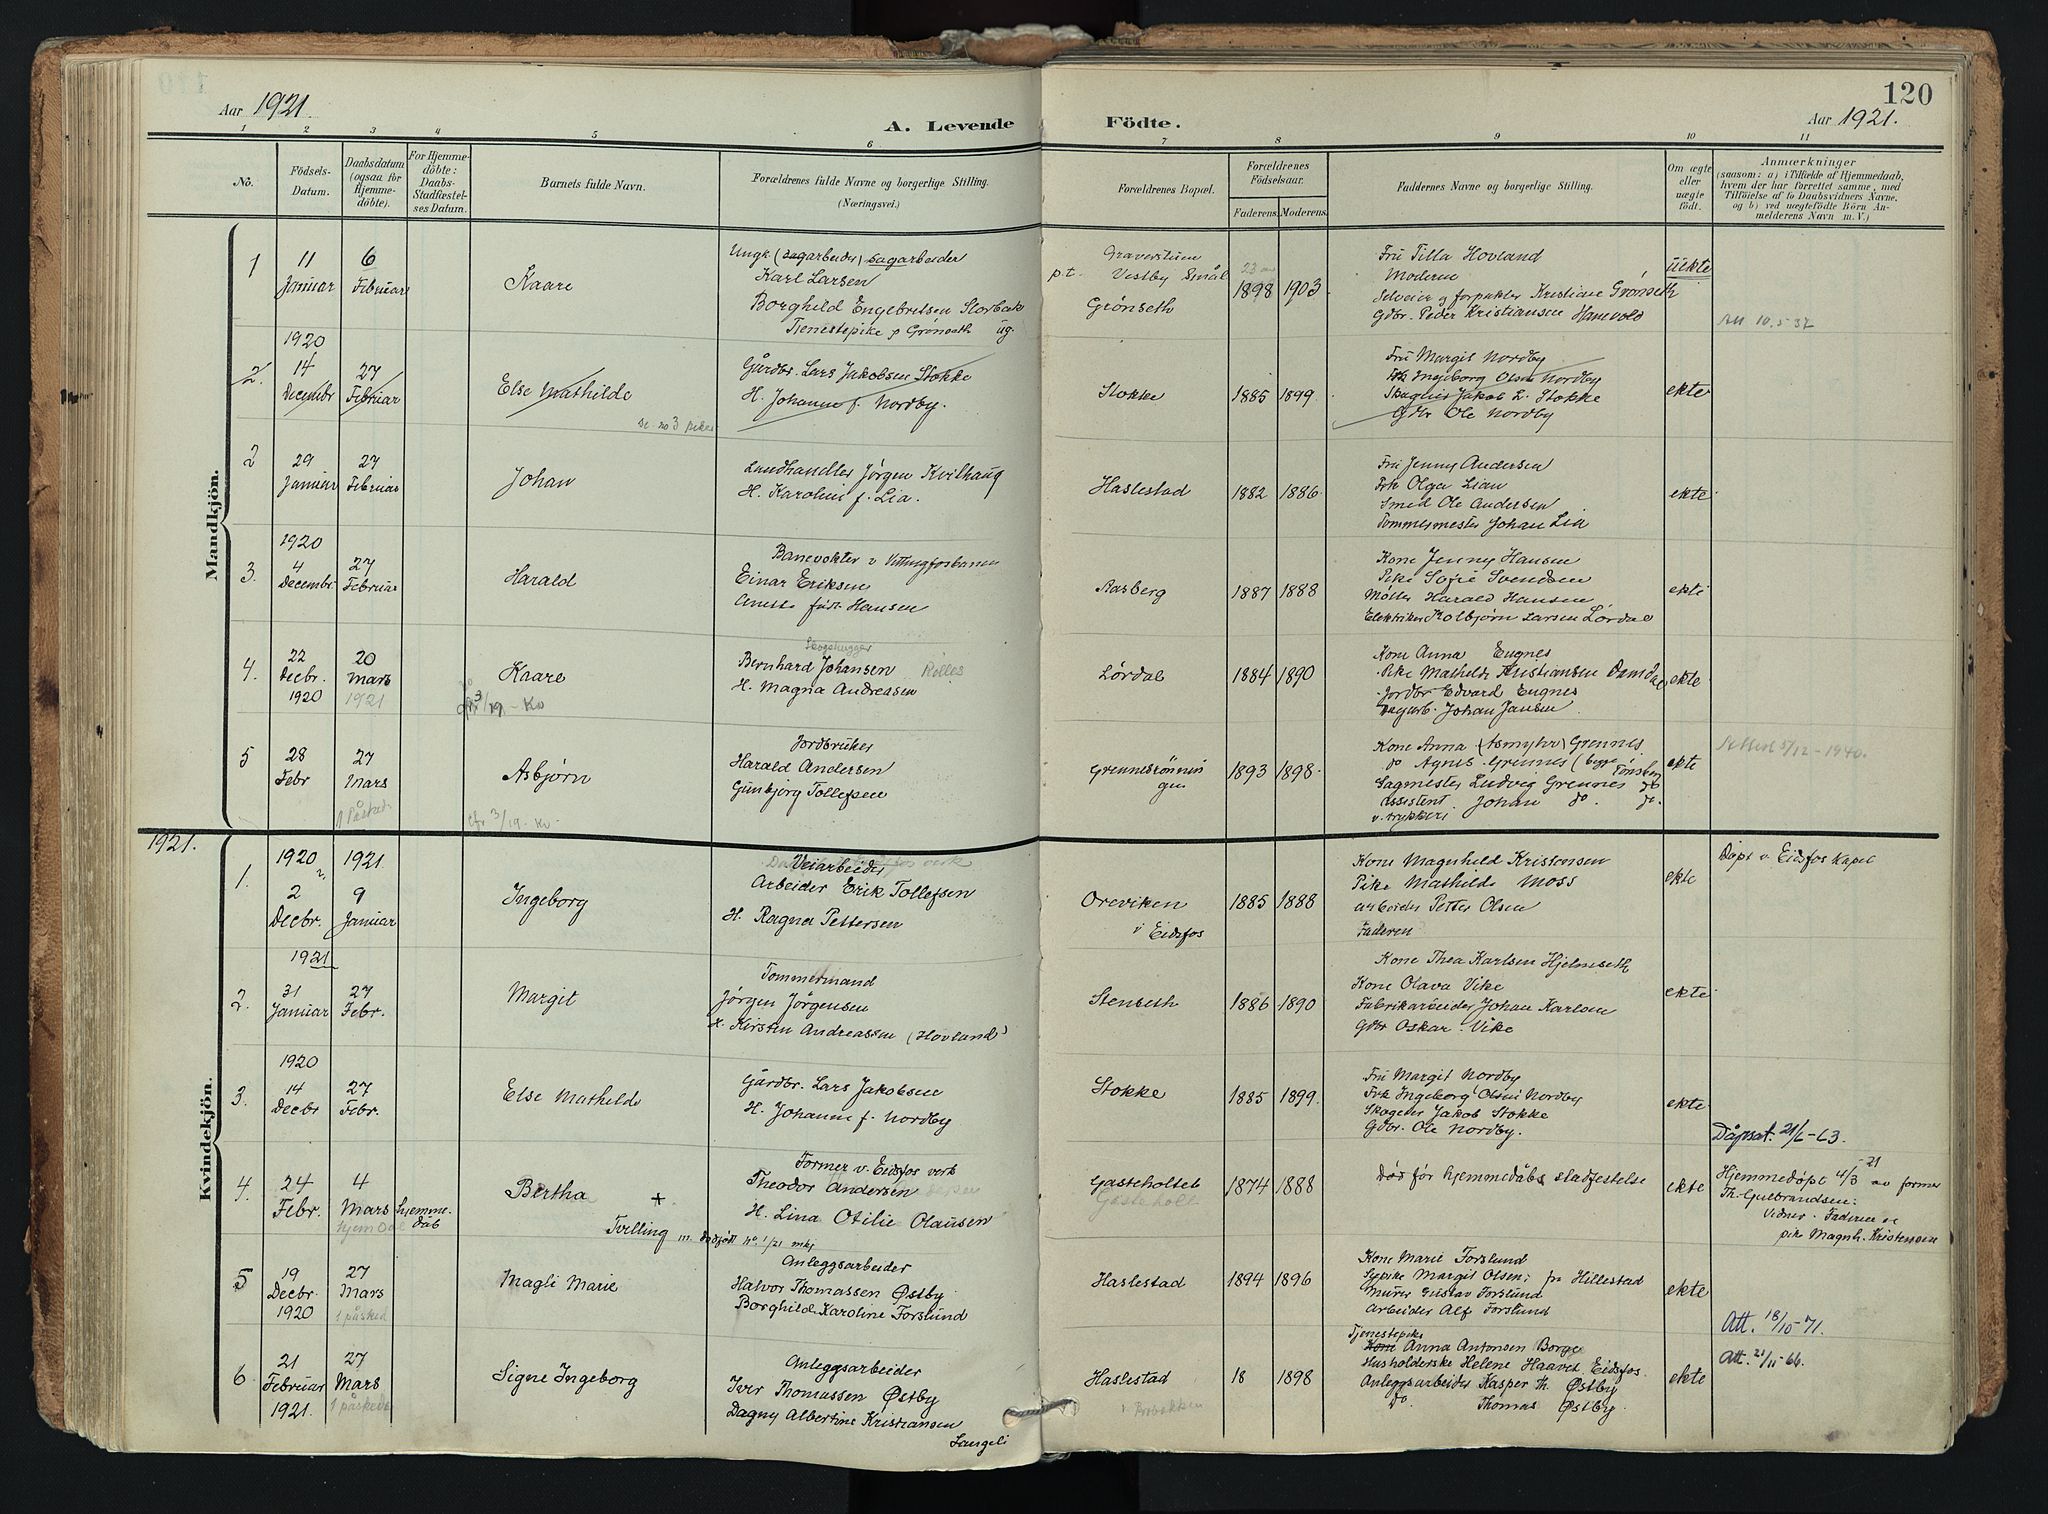 Aar 1921.
A. Levende Födte.
120
Aar 1921.
1 2 3 4 5 6 7 8 9 10 11
No.
Födsels-Datum.
Daabsdatum (ogsaa for Hjemmedöbte).
For Hjemmedöbte: Daabs-Stadfæstelses Datum.
Barnets fulde Navn.
Forældrenes fulde Navne og borgerlige Stilling. (Næringsvei.)
Forældrenes Bopæl.
Forældrenes Födselsaar.
Faderens. Moderens.
Faddernes Navne og borgerlige Stilling.
Om ægte eller uægte födt.
Anmærkninger
(saasom: a) i Tilfælde af Hjemmedaab, hvem der har forrettet samme, med Tilföielse af to Daabsvidners Navne, og b) ved uægtefödte Börn Anmelderens Navn m. V.)
Mandkjön.
1
11 Januar
6 Februar
Kaare
Ungk (sagarbeider) sagarbeider
Karl Larsen
Borghild Engebretsen Storbæk
Tjenestepike p Grønseth ug.
p.t. Vestby Smål
Grønseth
23 aar
1898 1903
Fru Tilla Hovland
Moderen
Selveier og forpakter Kristian Grønseth
Gdbr. Peder Kristiansen Hanevold
uekte
Att 10.5 37
2.
1920
14 Decembr
27 Februar
Else Mathilde
se no 3 piker
Gårdbr. Lars Jakobsen Stokke
H. Johanne f. Nordby.
Stokke
1885 1899.
Fru Margit Nordby
Frk Ingeborg Olsen Nordby
Skogeier Jakob L. Stokke
Gdbr Ole Nordby
ekte
2
29 Januar
27 Februar
Johan
Landhandler Jørgen Kvilhaug
H. Karoline f. Lia.
Haslestad
1882 1886.
Fru Jenny Andersen
Frk Olga Lian
Smed Ole Andersen
Tømmermester Johan Lia
ekte
3.
1920
4 Decembr.
27 Februar
Harald
Banevokter v Vittingfosbanen
Einar Eriksen
Anette født Hansen
Aarberg
1887 1888
Kone Jenny Hansen
Pike Sofie Svendsen
Møller Harald Hansen
Elektriker Kolbjørn Larsen Lørdal
ekte
4.
22 Decbr. 1920
20 Mars 1921
Kaare
Skogshugger
Bernhard Johansen
H. Magna Andreasen
Lørdal
1884 1890
Kone Anna Engnes
Pike Mathilde Kristiansen Damdal
Jordbr Edvard Engnes
Johan Jansen
ekte
5
28 Febr
27 Mars
1 Påsked
Asbjørn
cfr 3/19 - Kv
Jordbruker
Harald Andersen
Gunbjørg Tollefsen
Grennesrønningen
1893 1898.
Kone Anna (Asmyhr) Grennes
do Agnes Grennes (begge Tønsberg
Sagmester Ludvig Grennes do
assistent Johan do. do.
v. trykkeri
ekte
Attest 5/12-1940.
1921.
Kvindekjön.
1.
1920
2 Decbr.
1921
9 Januar
Ingeborg
Veiarbeider
Arbeider Erik Tollefsen
H. Ragna Pettersen
Oreviken
i Eidsfos
1885 1888
Kone Magnhild Kristensen
Pike Mathilde Moss
arbeider Petter Olsen
Faderen
ekte
Døpt v. Eidsfos Kapel
2.
1921
31 Januar
27 Febr.
Margit
Tømmermand
Jørgen Jørgensen
H. Kirsten Andreassen (Hovland)
Stenseth
1886 1890
Kone Thea Karlsen Hjelmseth
Kone Olava Vike
Fabrikarbeider Johan Karlsen
Gdbr Oskar Vike
ekte
3.
1920
14 Decbr
27 Febr.
Else Mathilde
Gårdbr. Lars Jakobsen
H. Johanne f. Nordby
Stokke
1885 1899.
Fru Margit Nordby
Frk Ingeborg Olsen Nordby
Skogeier Jakob Stokke
Gdbr. Ole Nordby.
ekte
Dåpsat. 21/6-63.
4.
24 Febr.
4 Mars
hjemmedåb
Bertha +
Tvilling m. dødfødt no. 1/21 mkj
Former v. Eidsfos verk
Theodor Andersen
H. Lina Otilie Olausen
Gasteholtet
Gasteholt
1874 1888
Død før hjemmedåbs stadfestelse
ekte
Hjemmedøpt 4/3-21 av former
Th. Gulbrandsen:
Vidner: Faderen og
pike Magnh. Kristensen
5
19 Decbr. 1920
27 Mars
1 påsked
Magli Marie
Anleggsarbeider
Halvor Thomassen Østby
Borghild Karoline Forslund
Haslestad
1894 1896
Kone Marie Forslund
Sypike Margit Olsen; fra Hillestad
Murer Gustav Forslund
arbeider Alf Forslund
ekte
Att. 18/10-71.
6
21 Februar 1921.
27 Mars
1 påsked
Signe Ingeborg
Anleggsarbeider
Iver Thomassen Østby
Dagny Albertine Kristiansen
Langeli
Haslestad
18 1898
Tjenestepike
Kone Anna Antonsen Borge
Husholderske Helene Haavet Eidsfos
Anleggsarbeider Kasper Th. Østby
Do. Thomas Østby
ekte
Att. 21/11-66.